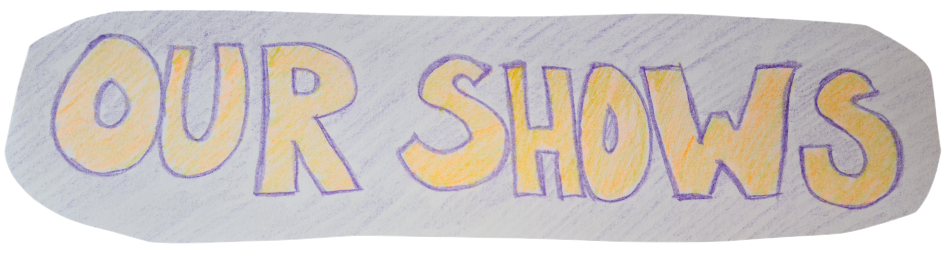 OUR SHOWS